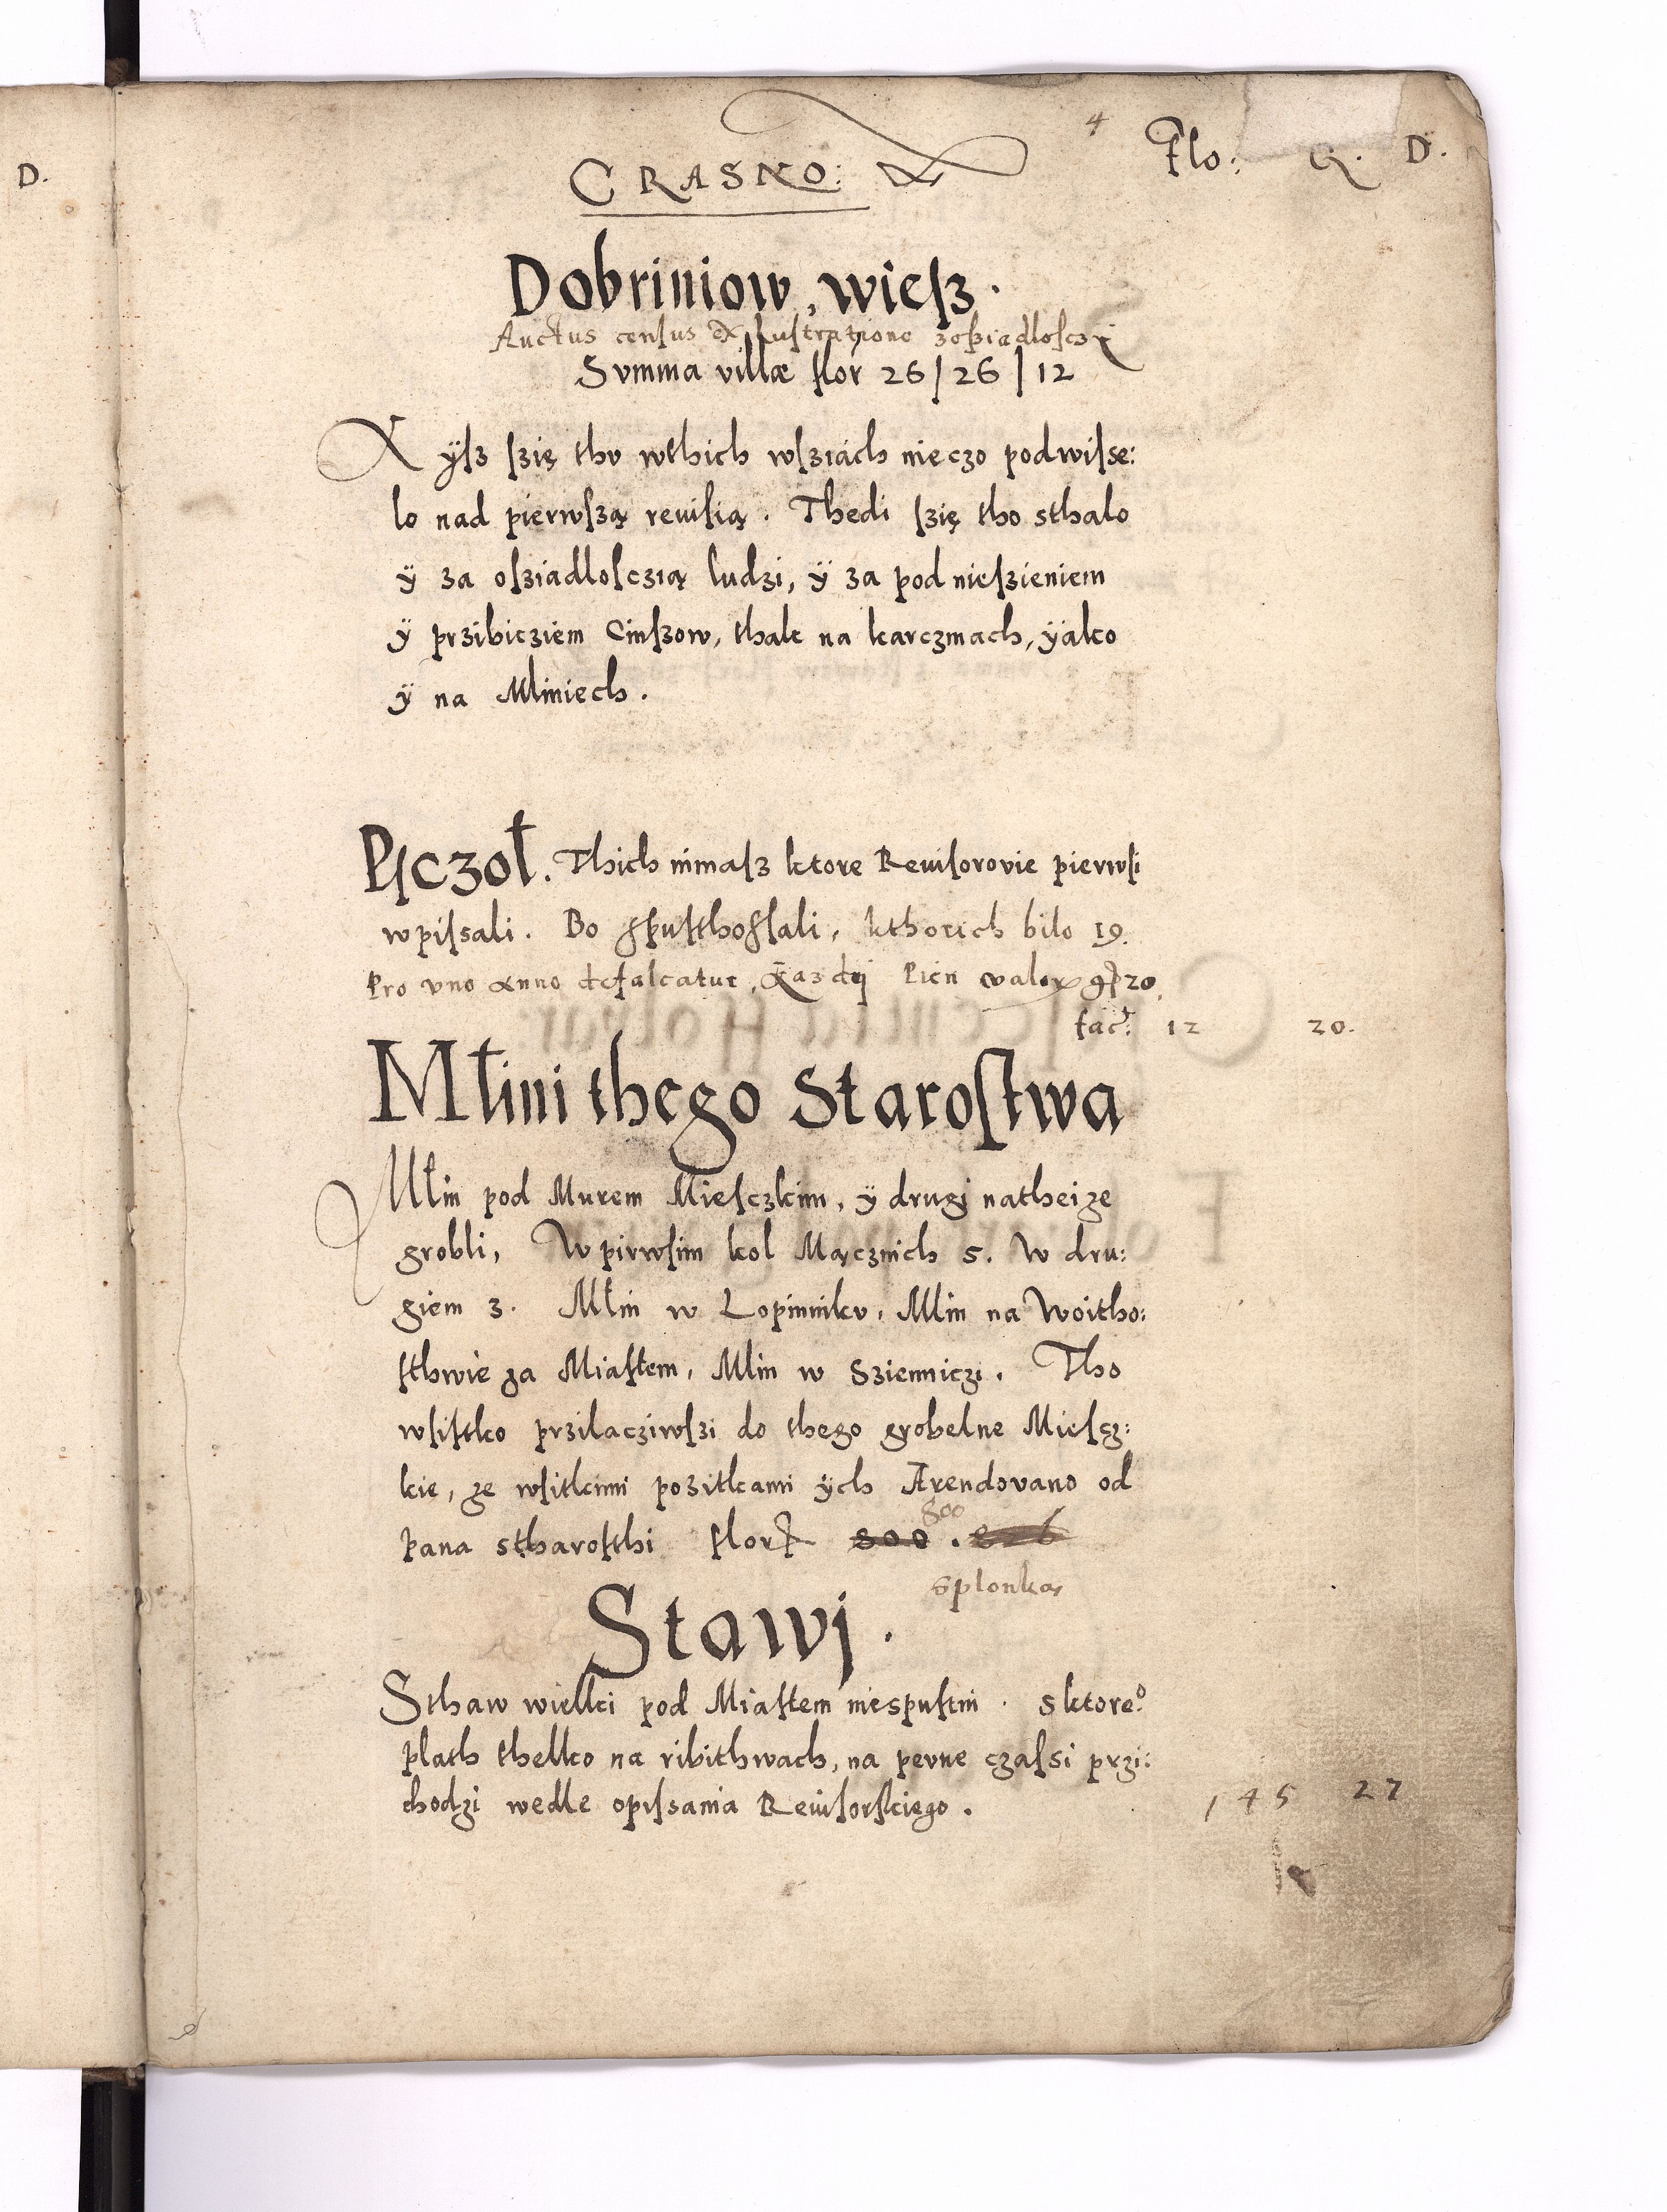 D.
4
CRASNO:
Flo: G. D.
Dobriniow, wieſz.
Auctus cenſus ex luſtratione zosziadloſczy
Svmma villæ flor 26/26/12
A ÿſz ſzię thv wthich wſziách nieczo podwiſse:
lo nad pierwſzą reuiſią. Thedi ſzię tho sthalo
ÿ za oſziadloſczią ludzi, ÿ za podnieſzieniem
ÿ przibicziem Cinſzow, thak na karczmach, ÿako
ÿ na Mliniech.
Pſczoł. Thich nimaſz ktore Reuiſorovie pierwſi
wpiſsali. Bo ſpuſthoſſali, kthorich bilo 19.
Pro vno anno defalcatur, Kazdy Pien valor gr 20
fac: 12 20.
Młini thego Staroſtwa
Młin pod Murem Mieſczkim, ÿ drugi natheize
grobli, W pirwſim kol Mącznich 5. W dru:
giem 3. Młin w Lopinnikv, Mlin na Woitho:
ſthwie za Miaſtem, Mlin w Szienniczi. Tho
wſiſtko przilacziwſzi do thego grobelne Mieſcz:
kie, ze wſitkimi pozitkami ÿch Arendovano od
800
pana stharoſthi flor 800.
Splonka
Stawj.
Sthaw wielki pod Miaſtem nieſpuſtni. Sktore°
plath thelko na ribithwach, na pevne czaſsi przi:
chodzi wedle opiſsania Reuiſorſkiego.
145 27